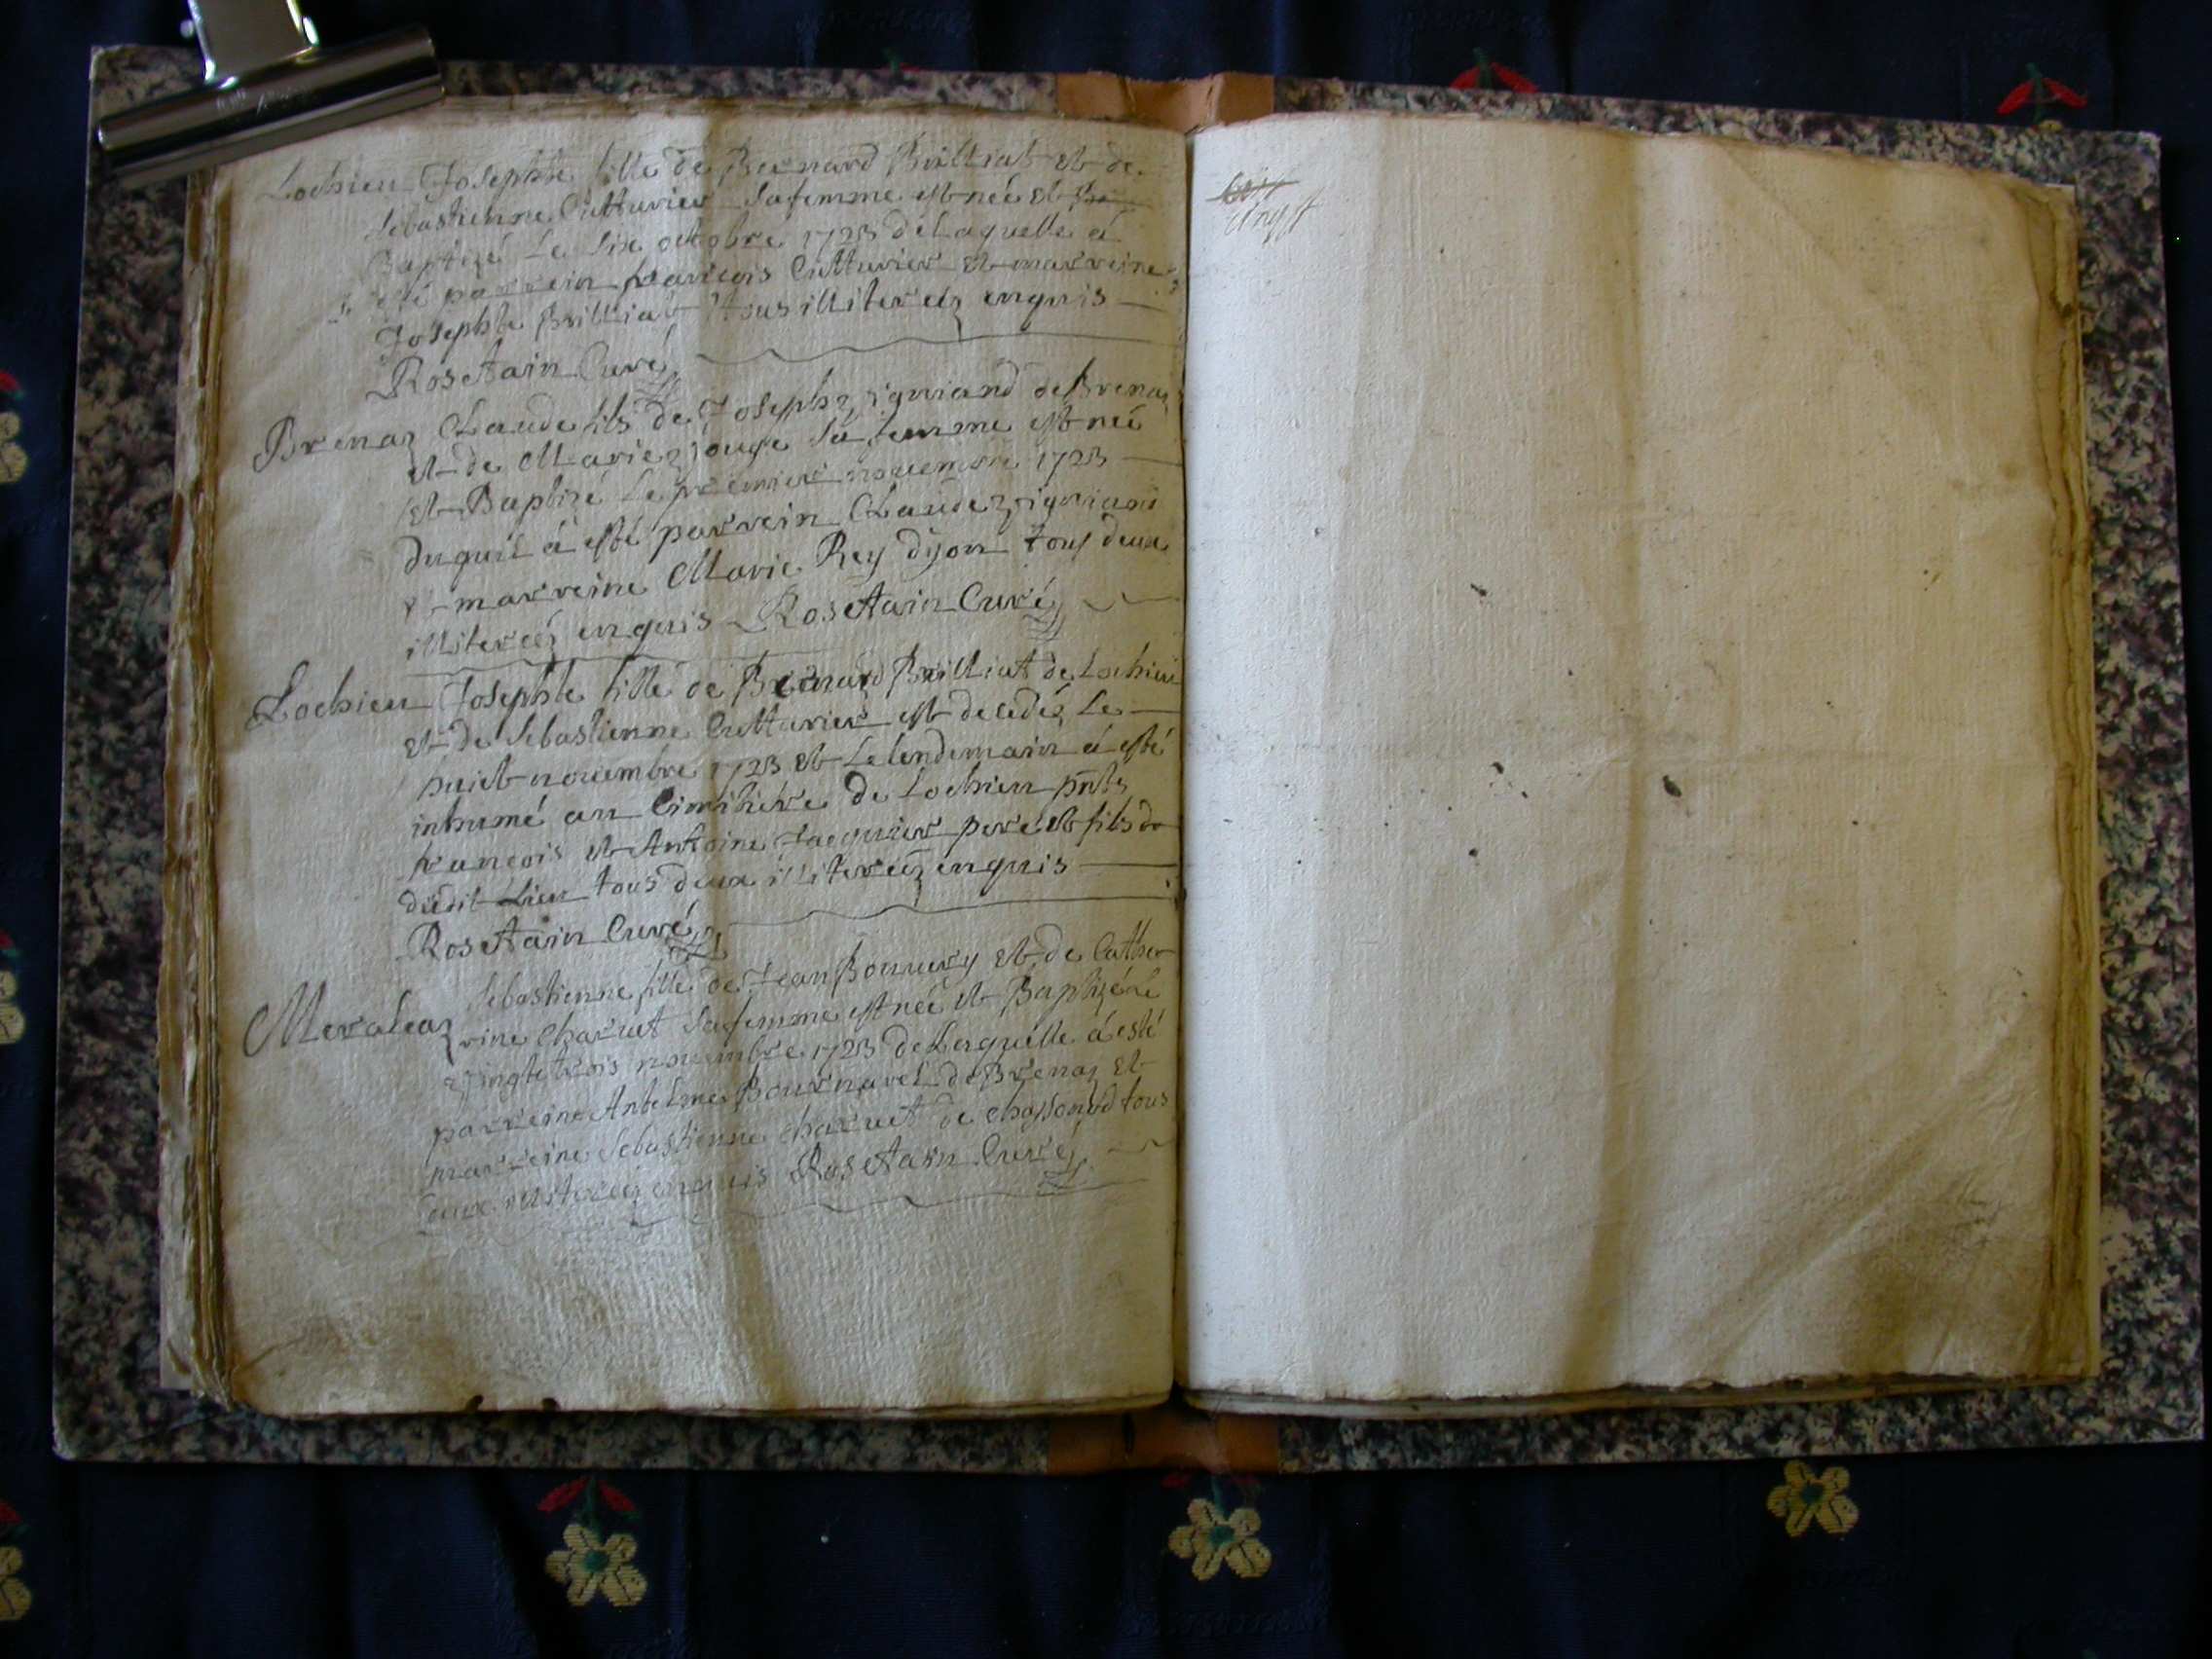 Lochieu Josephte fille de Bernard Brilliat et de
Sebastienne Cutturier sa femme est née et
Baptizé le six octobre 1723 de laquelle á
esté parrein francois Cutturier et marreine
Josephte Brilliat tous illitereéz enquis
Rosetain Curé
Brenaz Claude fils de Joseph de Brenaz
et de Marie sa femme est neé
et Baptizé le premier nouembre 1723
duquel á esté parrein Claude
marreine Marie Rey dyon tous deux
illitereéz enquis Rosetain Curé
Lochieu Josephte fille de Bernard Brilliat de Lochieu
et de Sebastienne Cutturier est decedéz le
huict nouembre 1723 et le lendemain á esté
inhumé au Cimitiere de Lochieu pnts
francois et Antoine Jacquier pere et fils de
dudit Lieu tous deux illitereéz enquis
Rosetain Curé
Meraleaz Sebastienne fille de Jean Bonnery et de Cathe
rine Charuet sa femme est neé et Baptizé le
vingtetrois nouembre 1723 de Laquelle á esté
parreine Antelme Bournarel de Brenaz et
marreine Sebastienne charuet de tous
deux illitereéz enquis Rosetain Curé